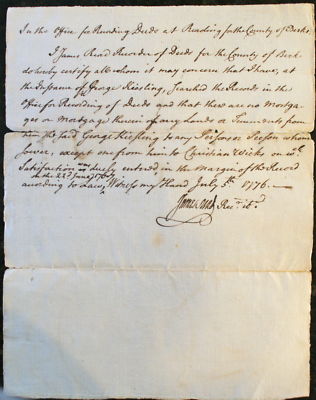 In the Office for Recording Deeds at Reading for the County of Berks.
I James Read Recorder of Deeds for the County of Berks
do hereby certify all whom it may concern that I have, at
the Instance of George Kiesling, searched the Records in the
Office for Recording of Deeds and that there are no Mortga-
ges or Mortgage therein of any Lands or Tenements from
him the said George Kiesling to any Persons or Person whom-
soever, except one from him to Christian Wicks on wch.
Satisfaction was duely entered in the Margin of the Record
on the 22d June
acording to Law, Witness my Hand July 5th. 1776.
James Read Recr.